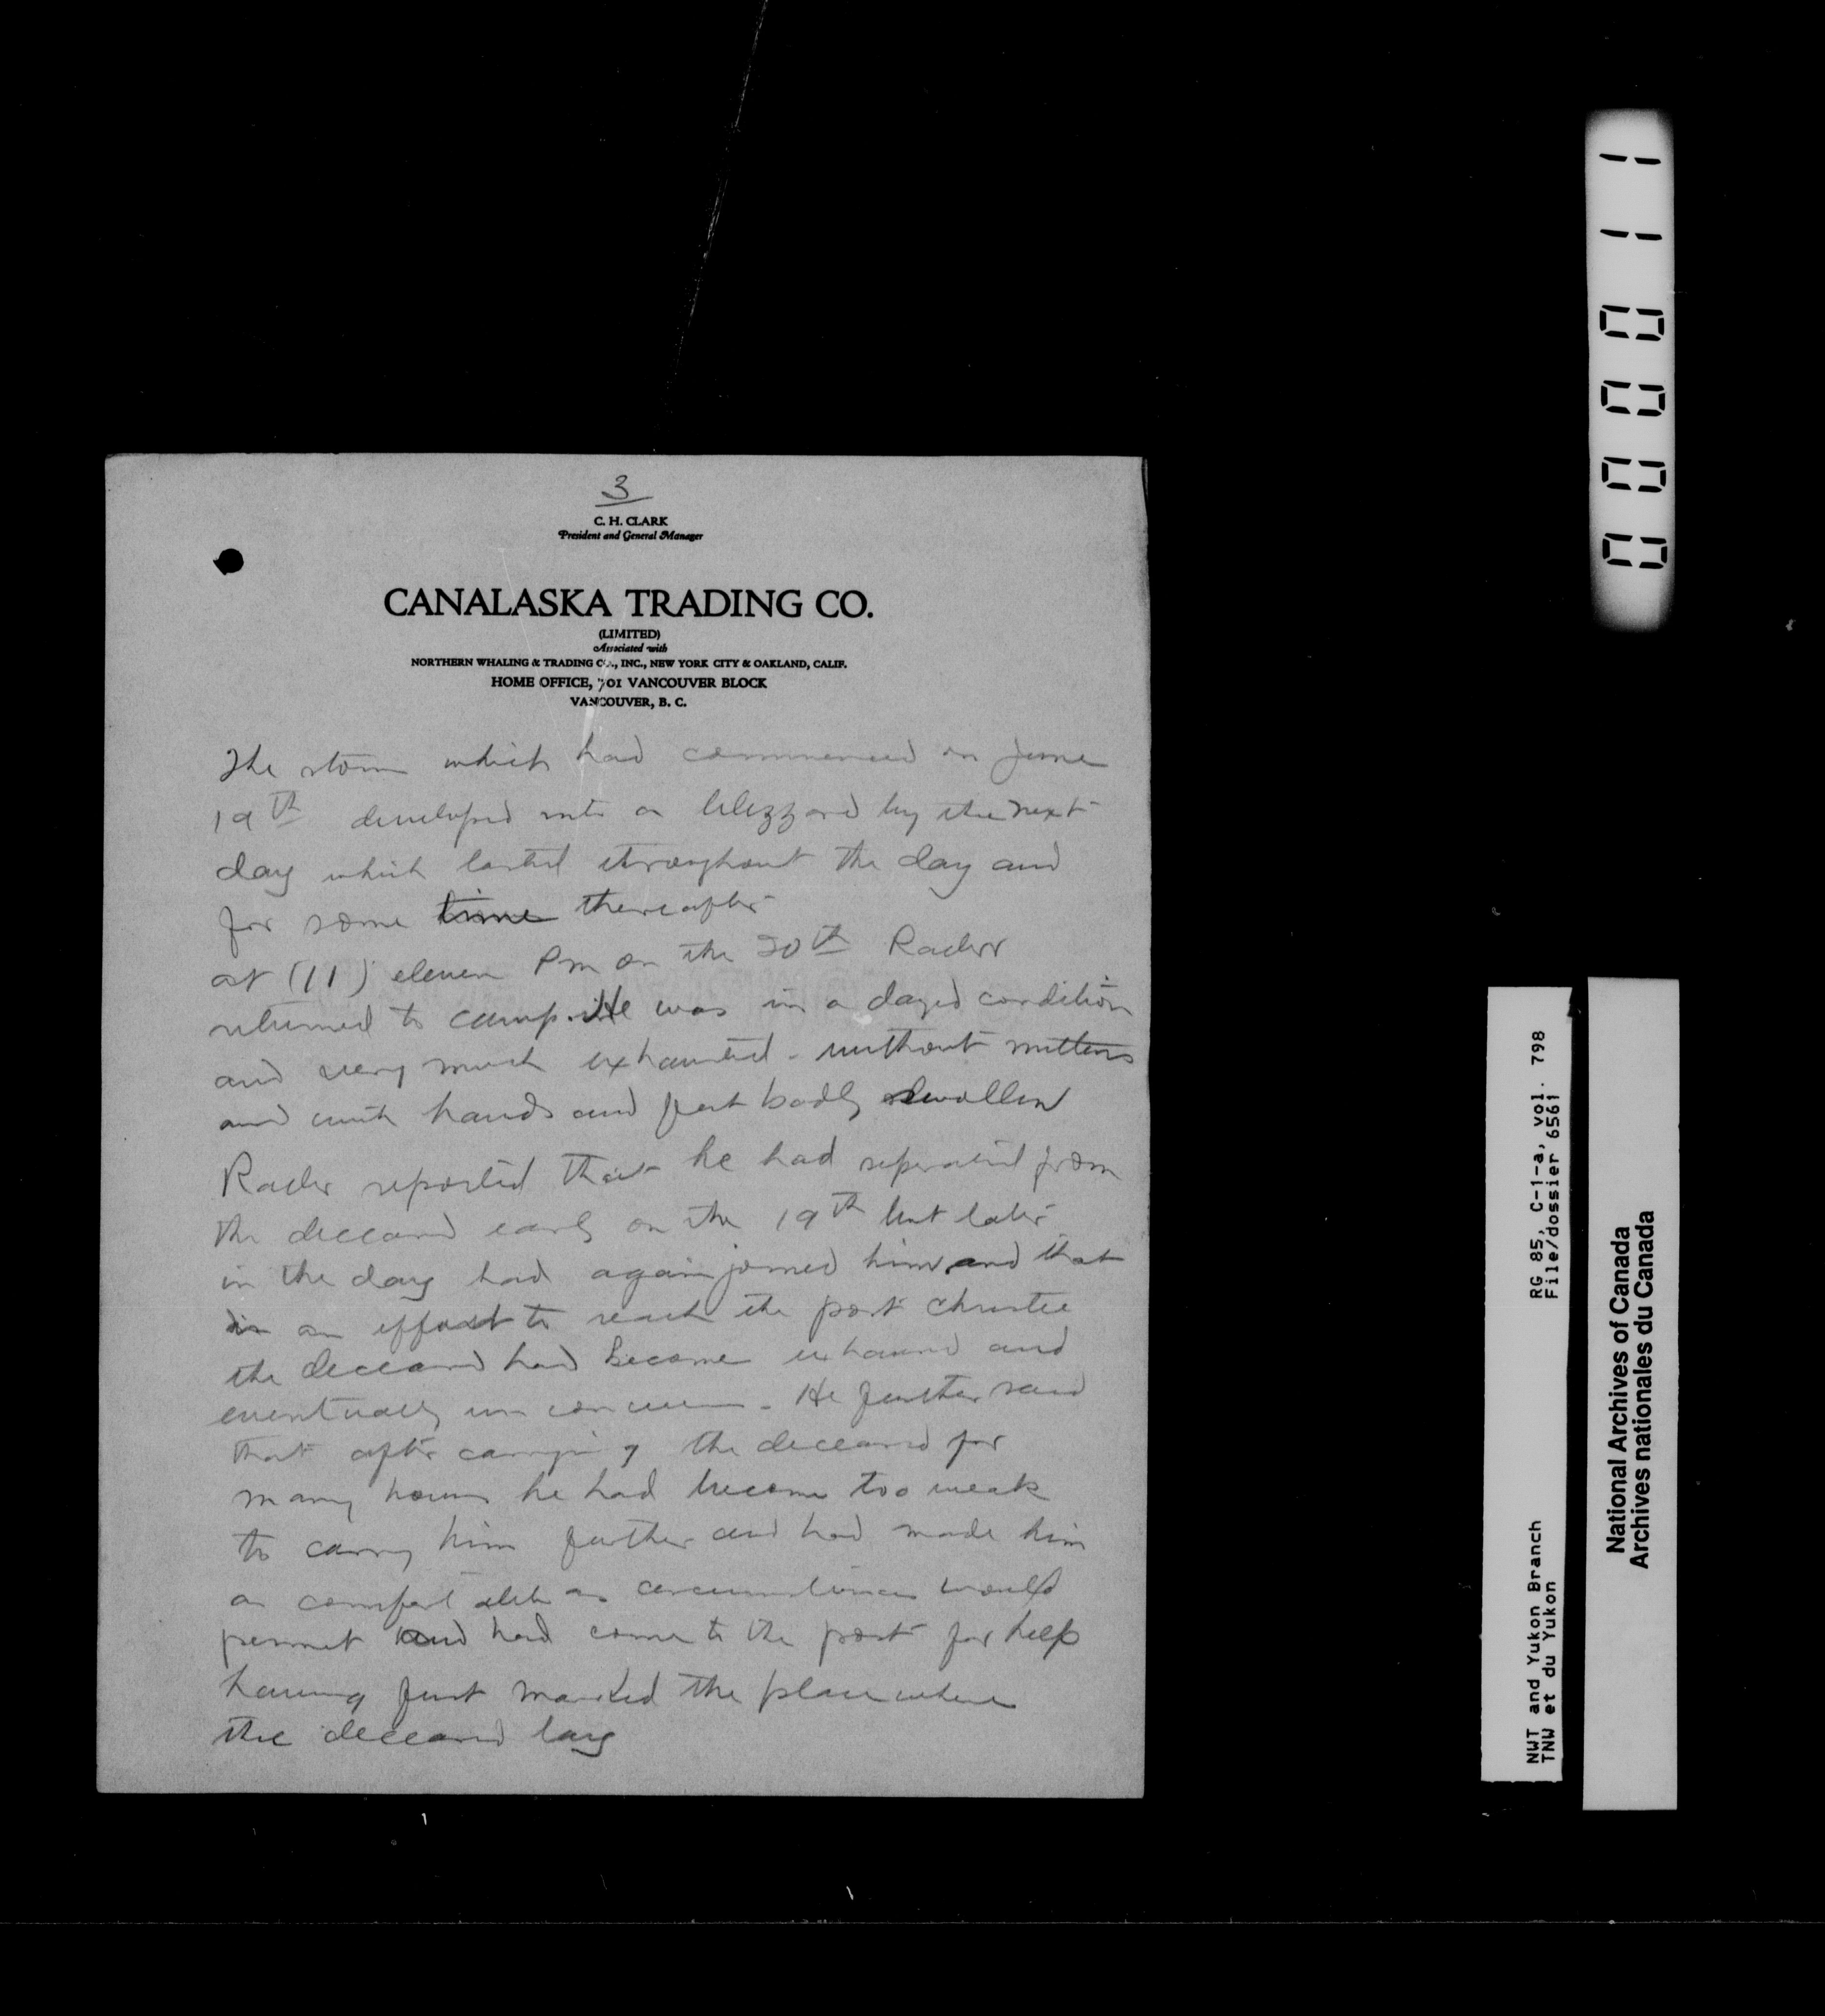 3
C. H. CLARK
President and General Manager
CANALASKA TRADING CO.
(LIMITED)
Associated with
NORTHERN WHALING & TRADING CO., INC., NEW YORK CITY & OAKLAND, CALIF.
HOME OFFICE, 701 VANCOUVER BLOCK
VANCOUVER, B. C.
The storm which had commenced on June
19th developed into a blizzard by the next
day which lasted throughout the day and
for some time thereafter
at (11) eleven Pm on the 20th Rader
returned to camp. He was in a dazed condition
and very much exhausted - without mittens
and with hands and feet badly swollen
Rader reported that he had seperated from
the deceased early on the 19th but later
in the day had again joined him and that
in an effort to reach the post Christie
the deceased had become exhausted and
eventually unconscious - He further said
that after carrying the deceased for
many hours he had become too weak
to carry him further and had made him
as comfortable as circumstances would
permit and had come to the post for help
having first marked the place where
the deceased lay
000011
RG 85, C-1-a, vol. 798
File/dossier 6561
NWT and Yukon Branch
TNW et du Yukon
National Archives of Canada
Archives nationales du Canada